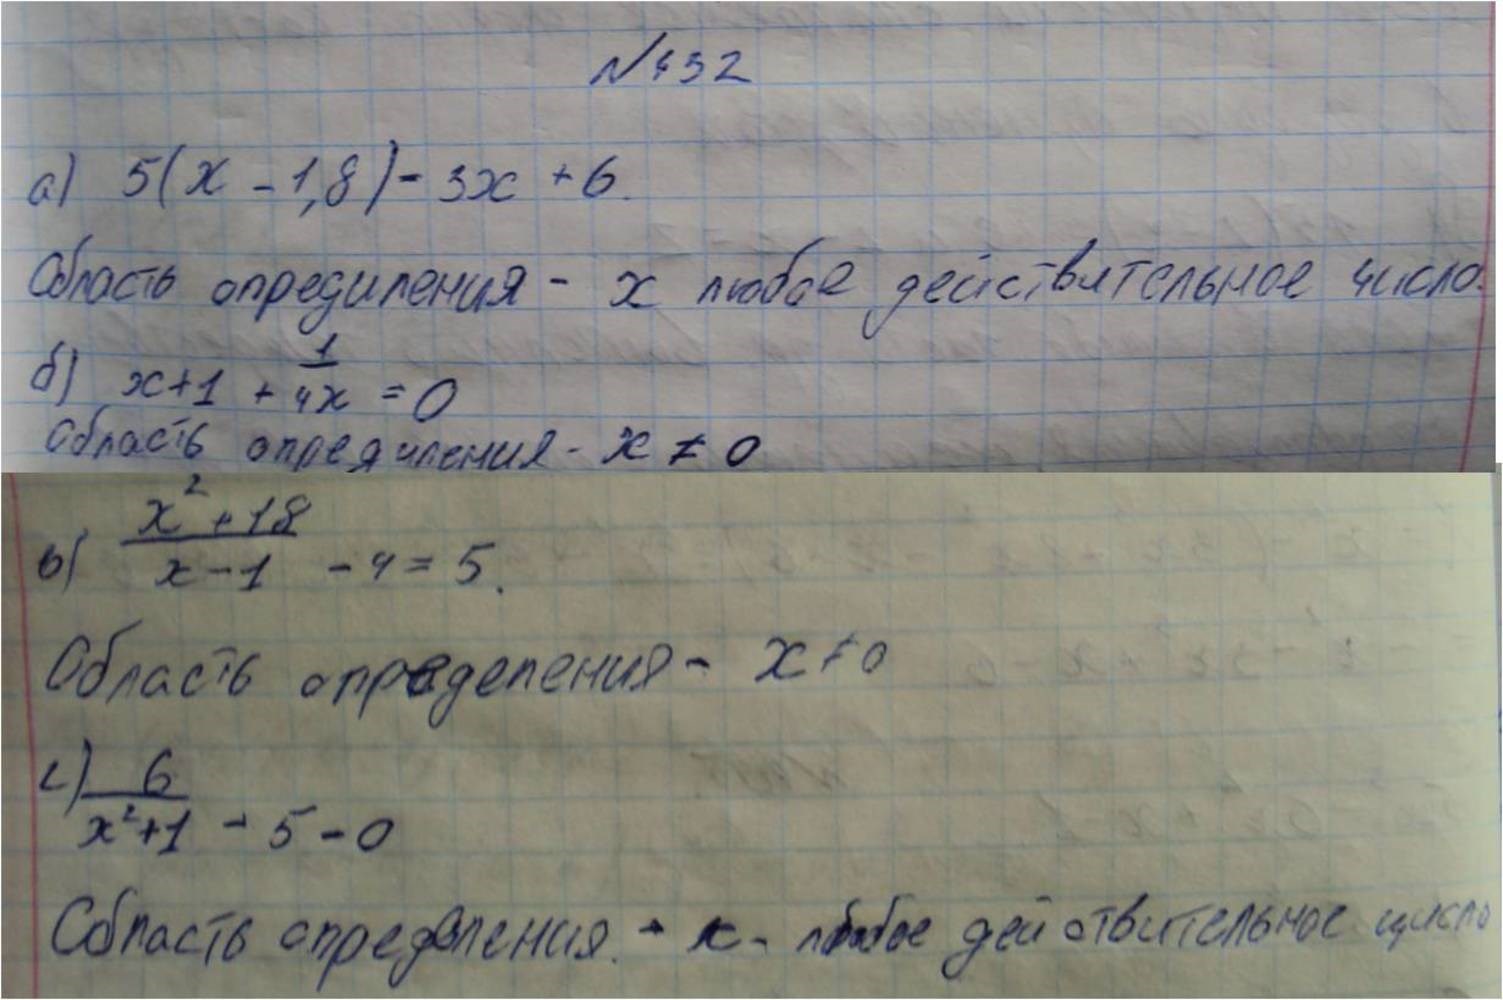 № 432
а) 5(x - 1,8) - 3x + 6.
Область опредиления - x любое действительное число.
б) x+1 + 1/4x = 0
Область опредиления - x ≠ 0
в) x²+18/x-1 - 4 = 5.
Область определения - x ≠ 0
с) 6/x²+1 - 5 - 0
Область определения. - x - любое действительное число